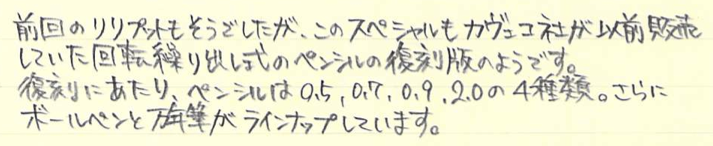 前回のリリプットもそうでしたが、このスペシャルもカヴェコ社が以前販売
していた回転繰り出し式のペンシルの復刻版のようです。
復刻にあたり、ペンシルは0.5,0.7,0.9,2.0の4種類。さらに
ボールペンと万年筆がラインナップしています。